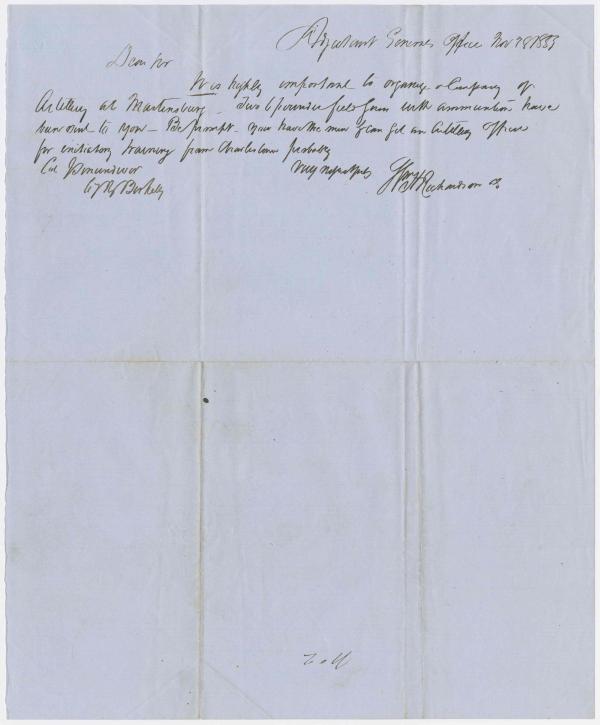 Adjutant Generals Office Nov 28 1859
Dear Sir
It is highly important to organize a Company of
Artillery at Martinsburg - Two 6 pounder field guns with ammunition have
been sent to you - Be prompt - you have the men & can get an Artillery officer
for initiatory training from Charlestown probably
Col
67 Rg Berkely
Very respectfully
Wm H Richardson